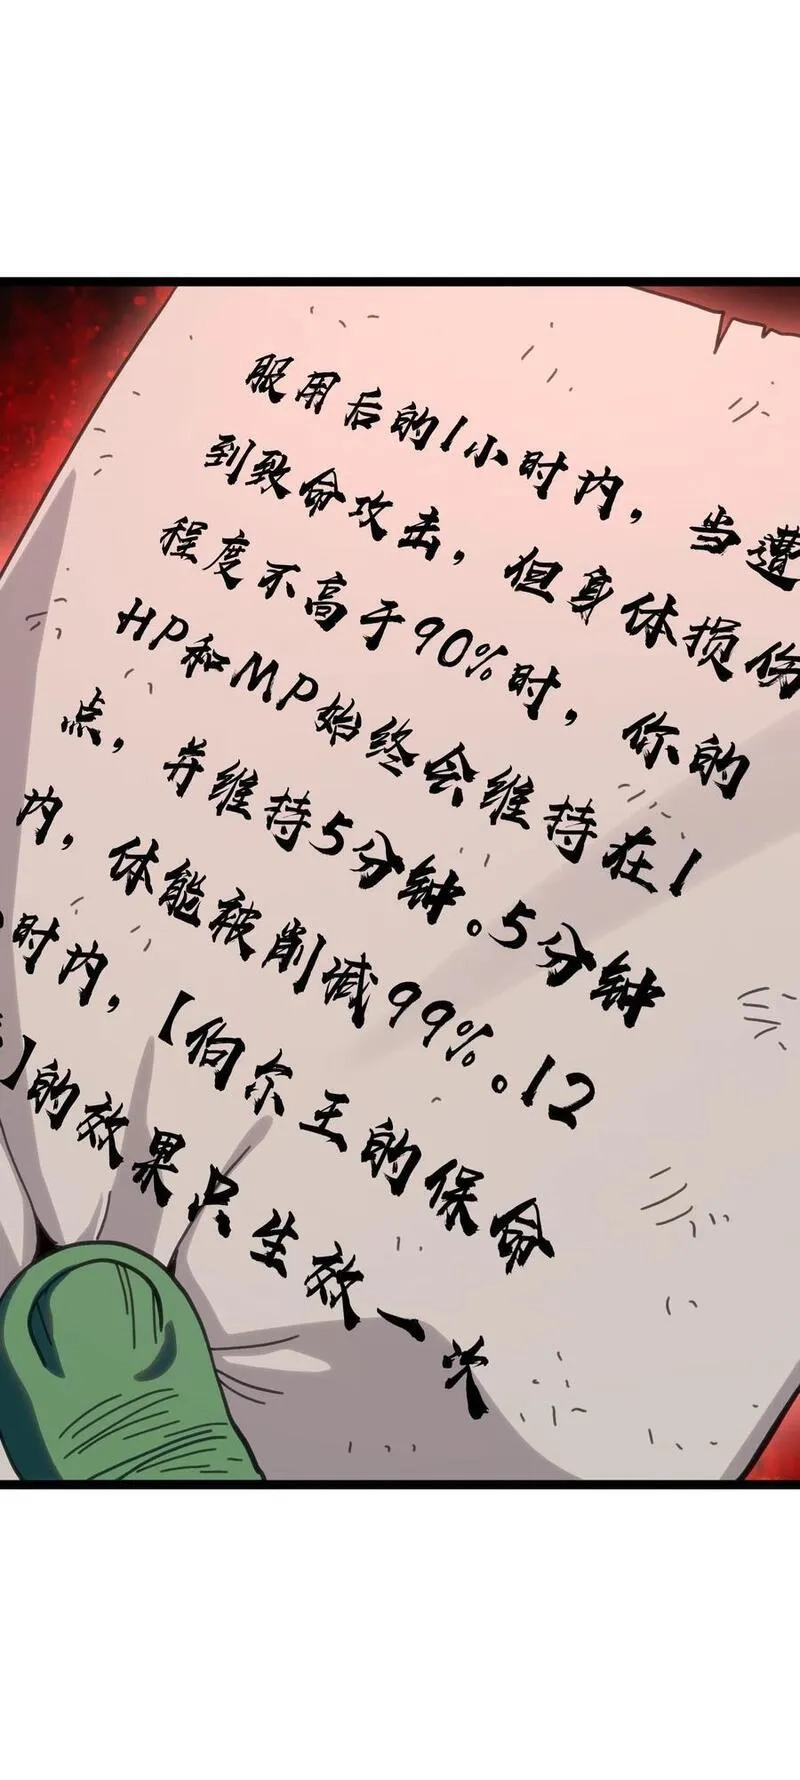 服用后的1小时内，当遭
到致命攻击，但身体损伤
程度不高于90%时，你的
HP和MP始终会维持在1
点，并维持5分钟。5分钟
内，体能被削减99%。12
时内，【伯尔王的保命
】的效果只生效一次